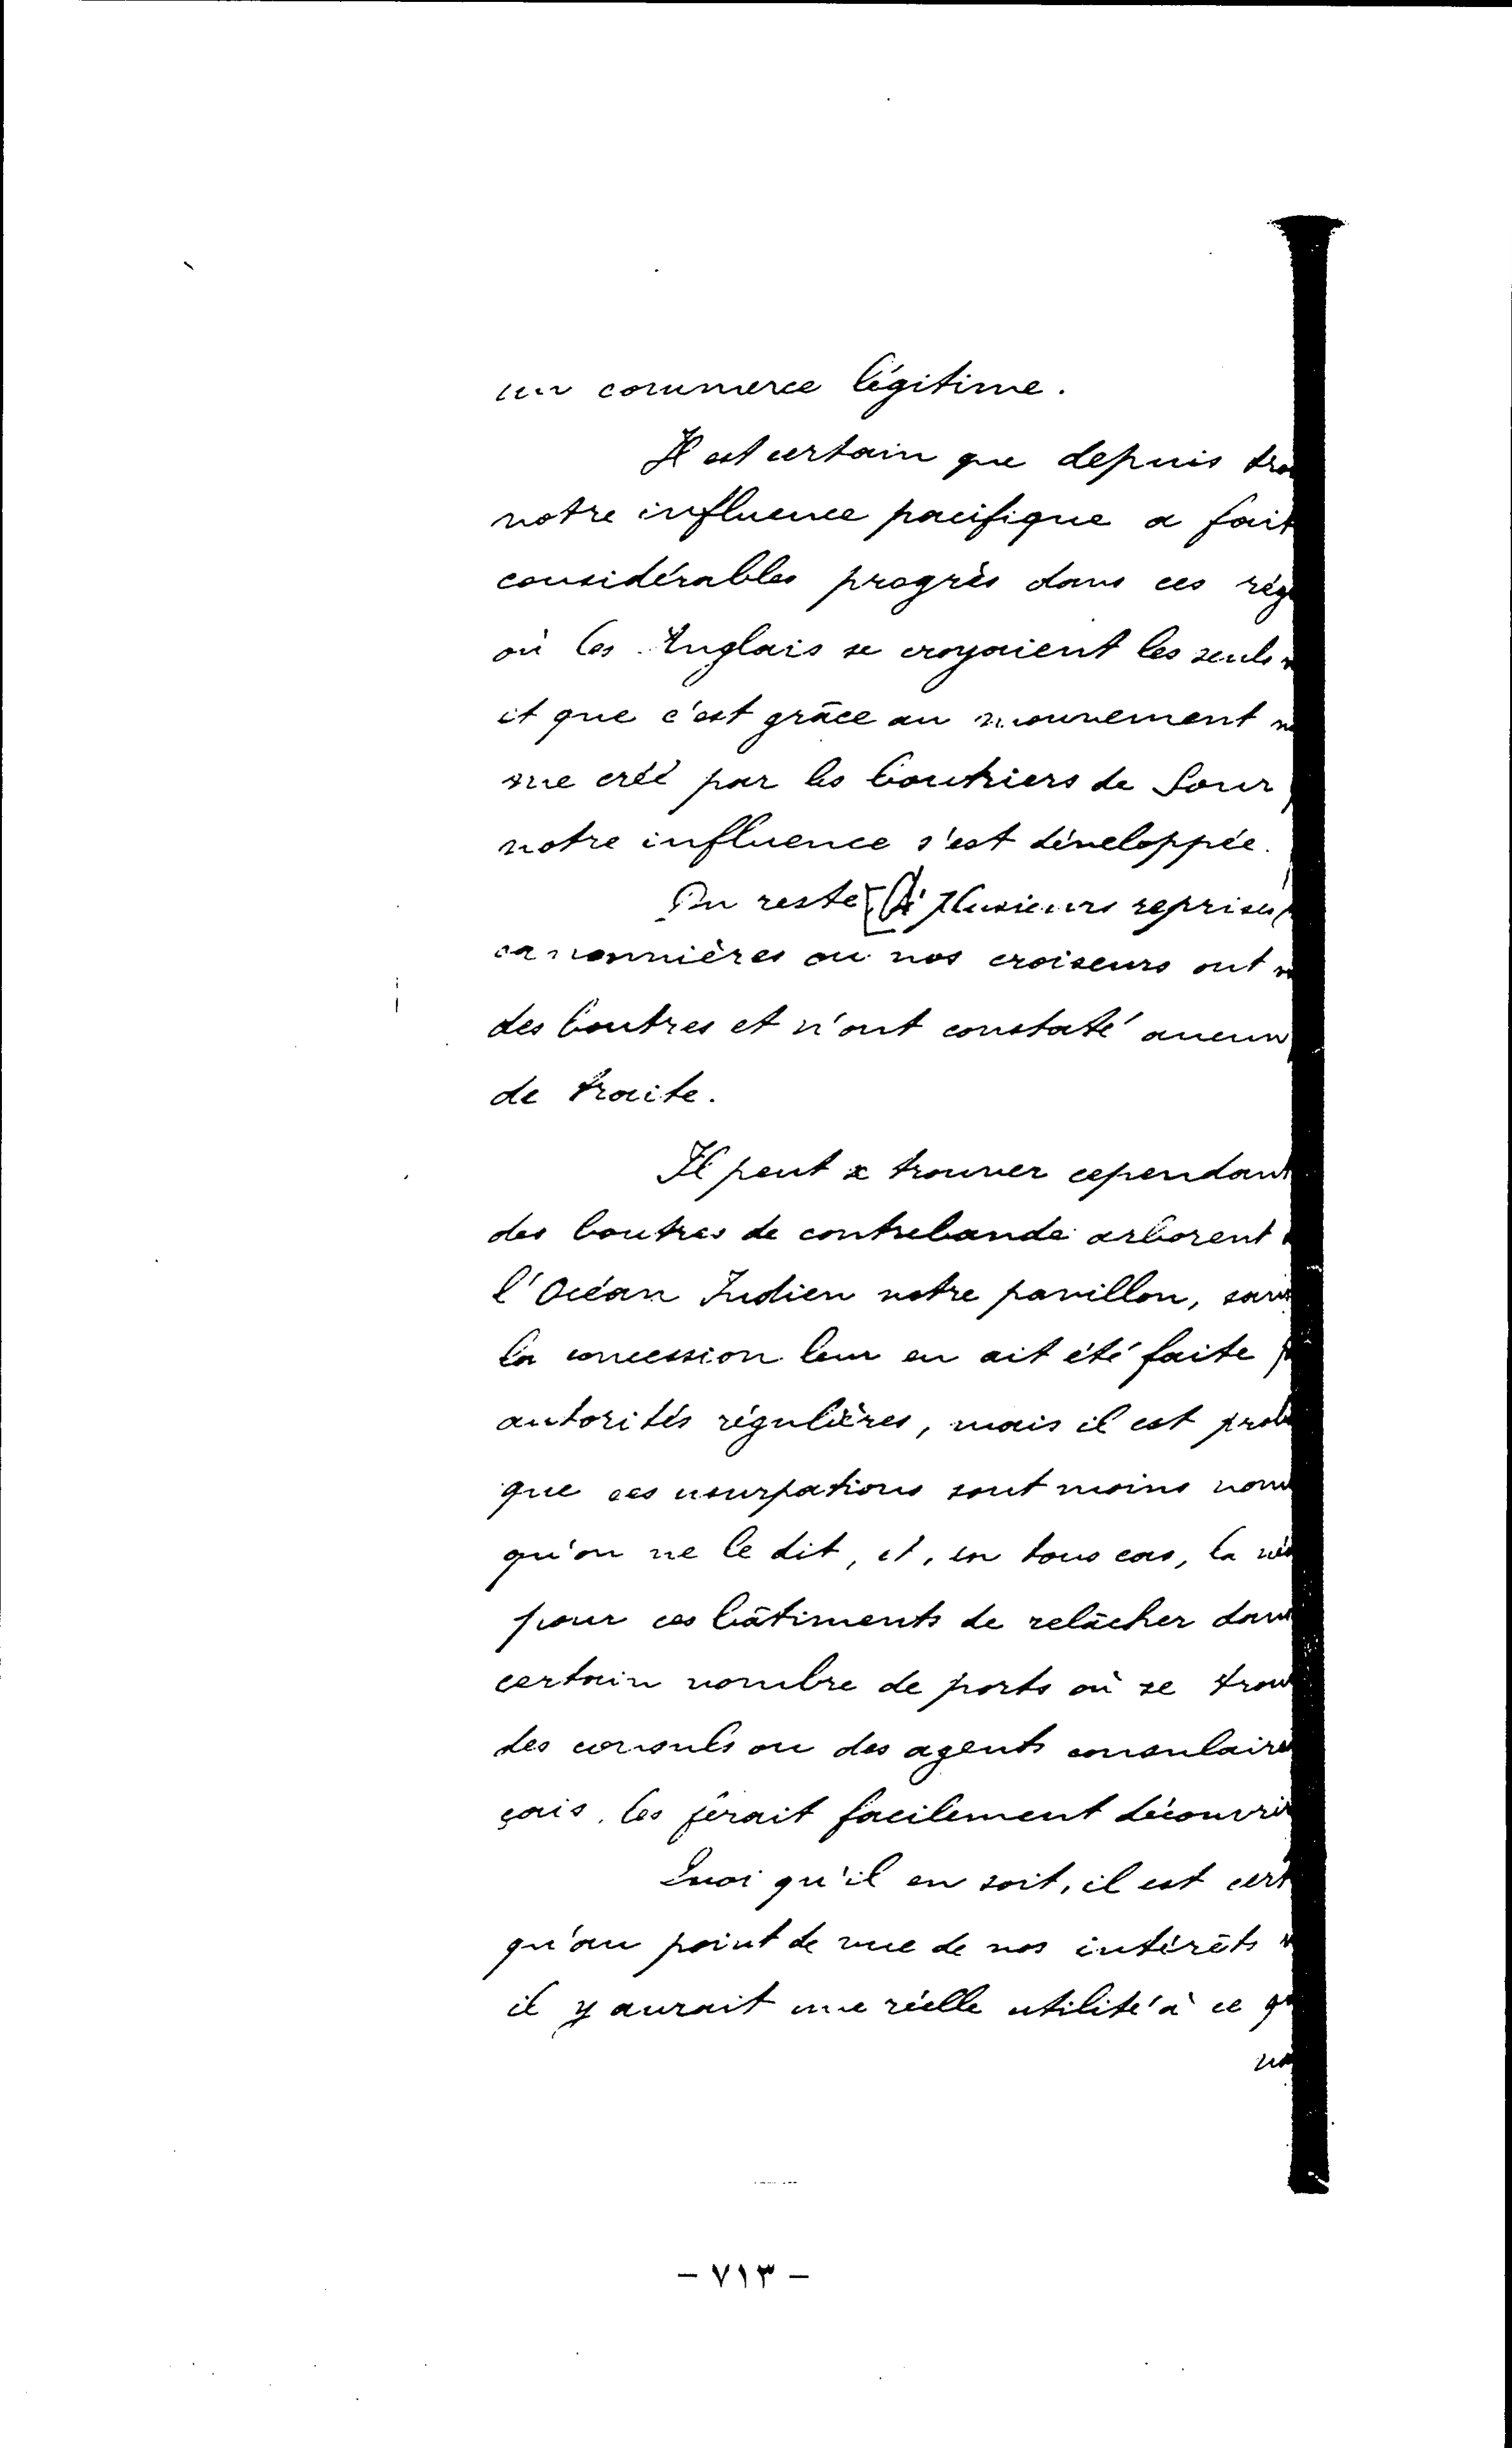 un commerce légitime.
Il est certain que depuis
notre influence pacifique a fait
considérables progrès dans ces
où les Anglais se croyaient les seuls
et que c'est grâce au mouvement
me créé par les boutriers de Sour
notre influence s'est développée.
Du reste [A plusieurs reprises
canonnières ou nos croiseurs ont
des boutres et n'ont constaté aucun
de traite.
Il peut se trouver cependant
des boutres de contrebande arborent
l'Océan Indien notre pavillon, sans
la concession leur en ait été faite
autorités régulières, mais il est
que ces usurpations sont moins
qu'on ne le dit, et, en tous cas, la
pour ces bâtiments de relâcher dans
certain nombre de ports où se
des consuls ou des agents consulaires
çais, les ferait facilement découvrir
Quoi qu'il en soit, il est
qu'au point de vue de nos intérêts
il y aurait une réelle utilité à ce
- ٧١٣ -